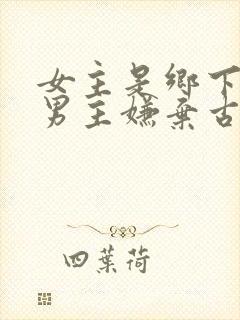 女主是鄉下
男主嫌棄古
四葉荷